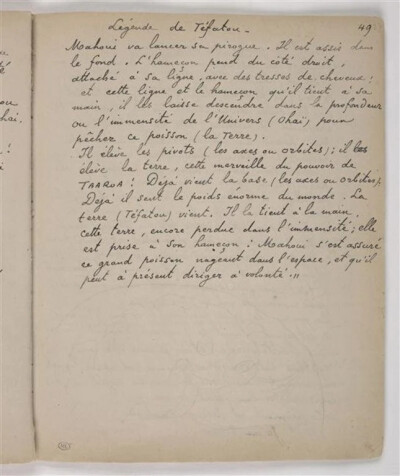 Légende de Téfatou.
49
Mahoui va lancer sa pirogue. Il est assis dans
le fond. L'hameçon pend du côté droit,
attaché à sa ligne, avec des tresses de cheveux;
et cette ligne et le hameçon qu'il tient à sa
main, il les laisse descendre dans la profondeur
ou l'immensité de l'Univers (Ohai), pour
pêcher ce poisson (la Terre).
Il élève les pivots (les axes ou orbites); il
élève la terre, cette merveille du pouvoir de
TAAROA! Déjà vient la base (les axes ou orbites).
Déjà il sent le poids énorme du monde. La
terre (Téfatou) vient. Il la tient à la main,
cette terre, encore perdue dans l'immensité; elle
est prise à son hameçon: Mahoui s'est assuré
ce grand poisson nageant dans l'espace, et qu'il
peut à présent diriger à volonté."